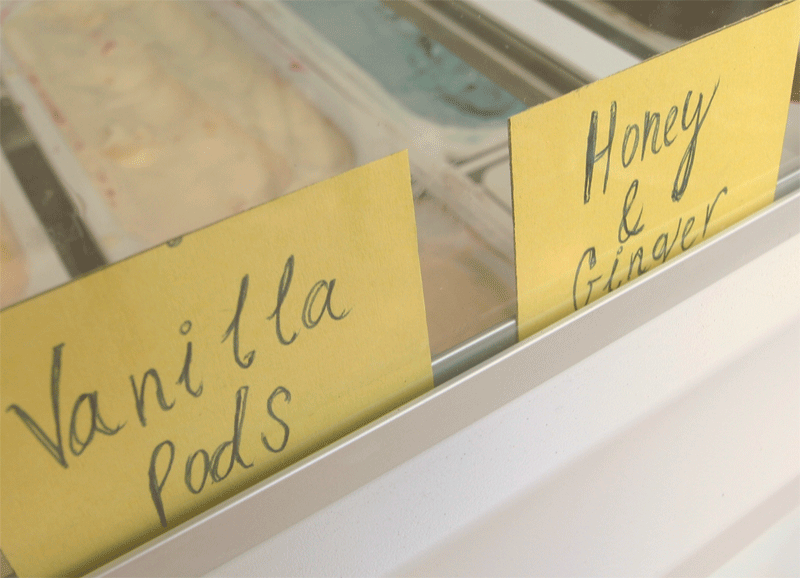 Vanilla
Pods
Honey
&
Ginger